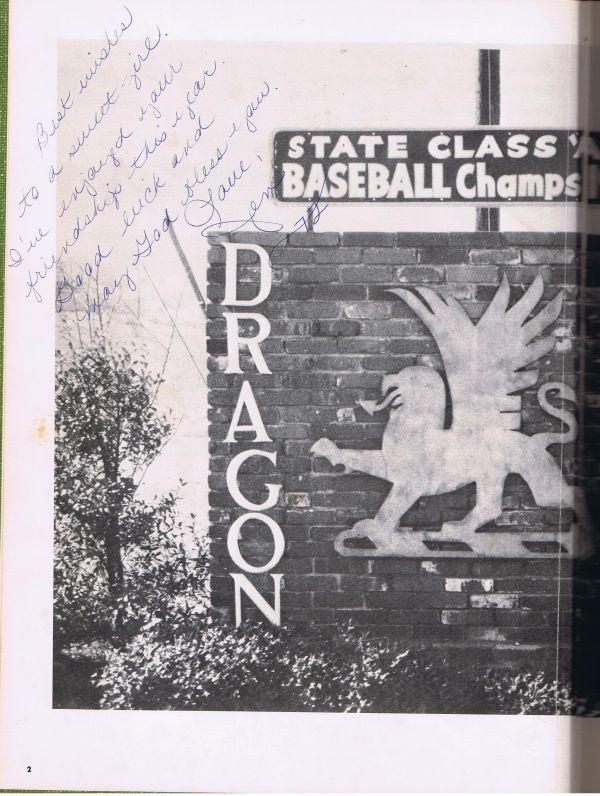 Best wishes
to a sweet girl.
I've enjoyed your
friendship this year.
Good luck and
may God bless you.
Love,
STATE CLASS 'A
BASEBALL Champs
DRAGON
2